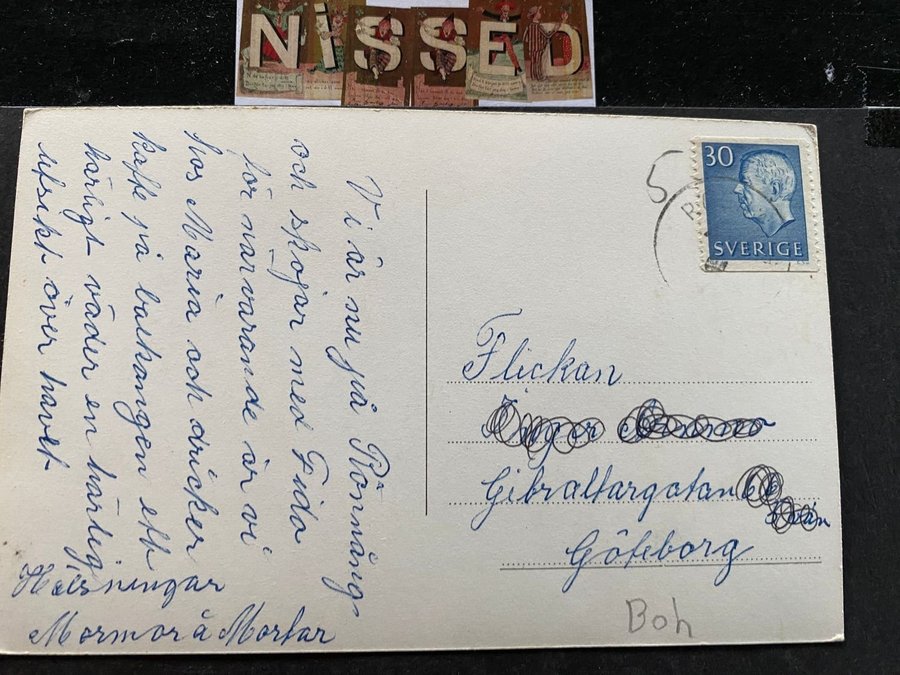 NISSED
Vi är nu på Rönnäng
och skojar med Fida
för närvarande är vi
hos Maria och dricker
kaffe på balkangen ett
härligt väder en härlig
utsikt över havet
Hälsningar
Mormor å Morfar
5
30
SVERIGE
Flickan
Gibraltargatan
Göteborg
Boh